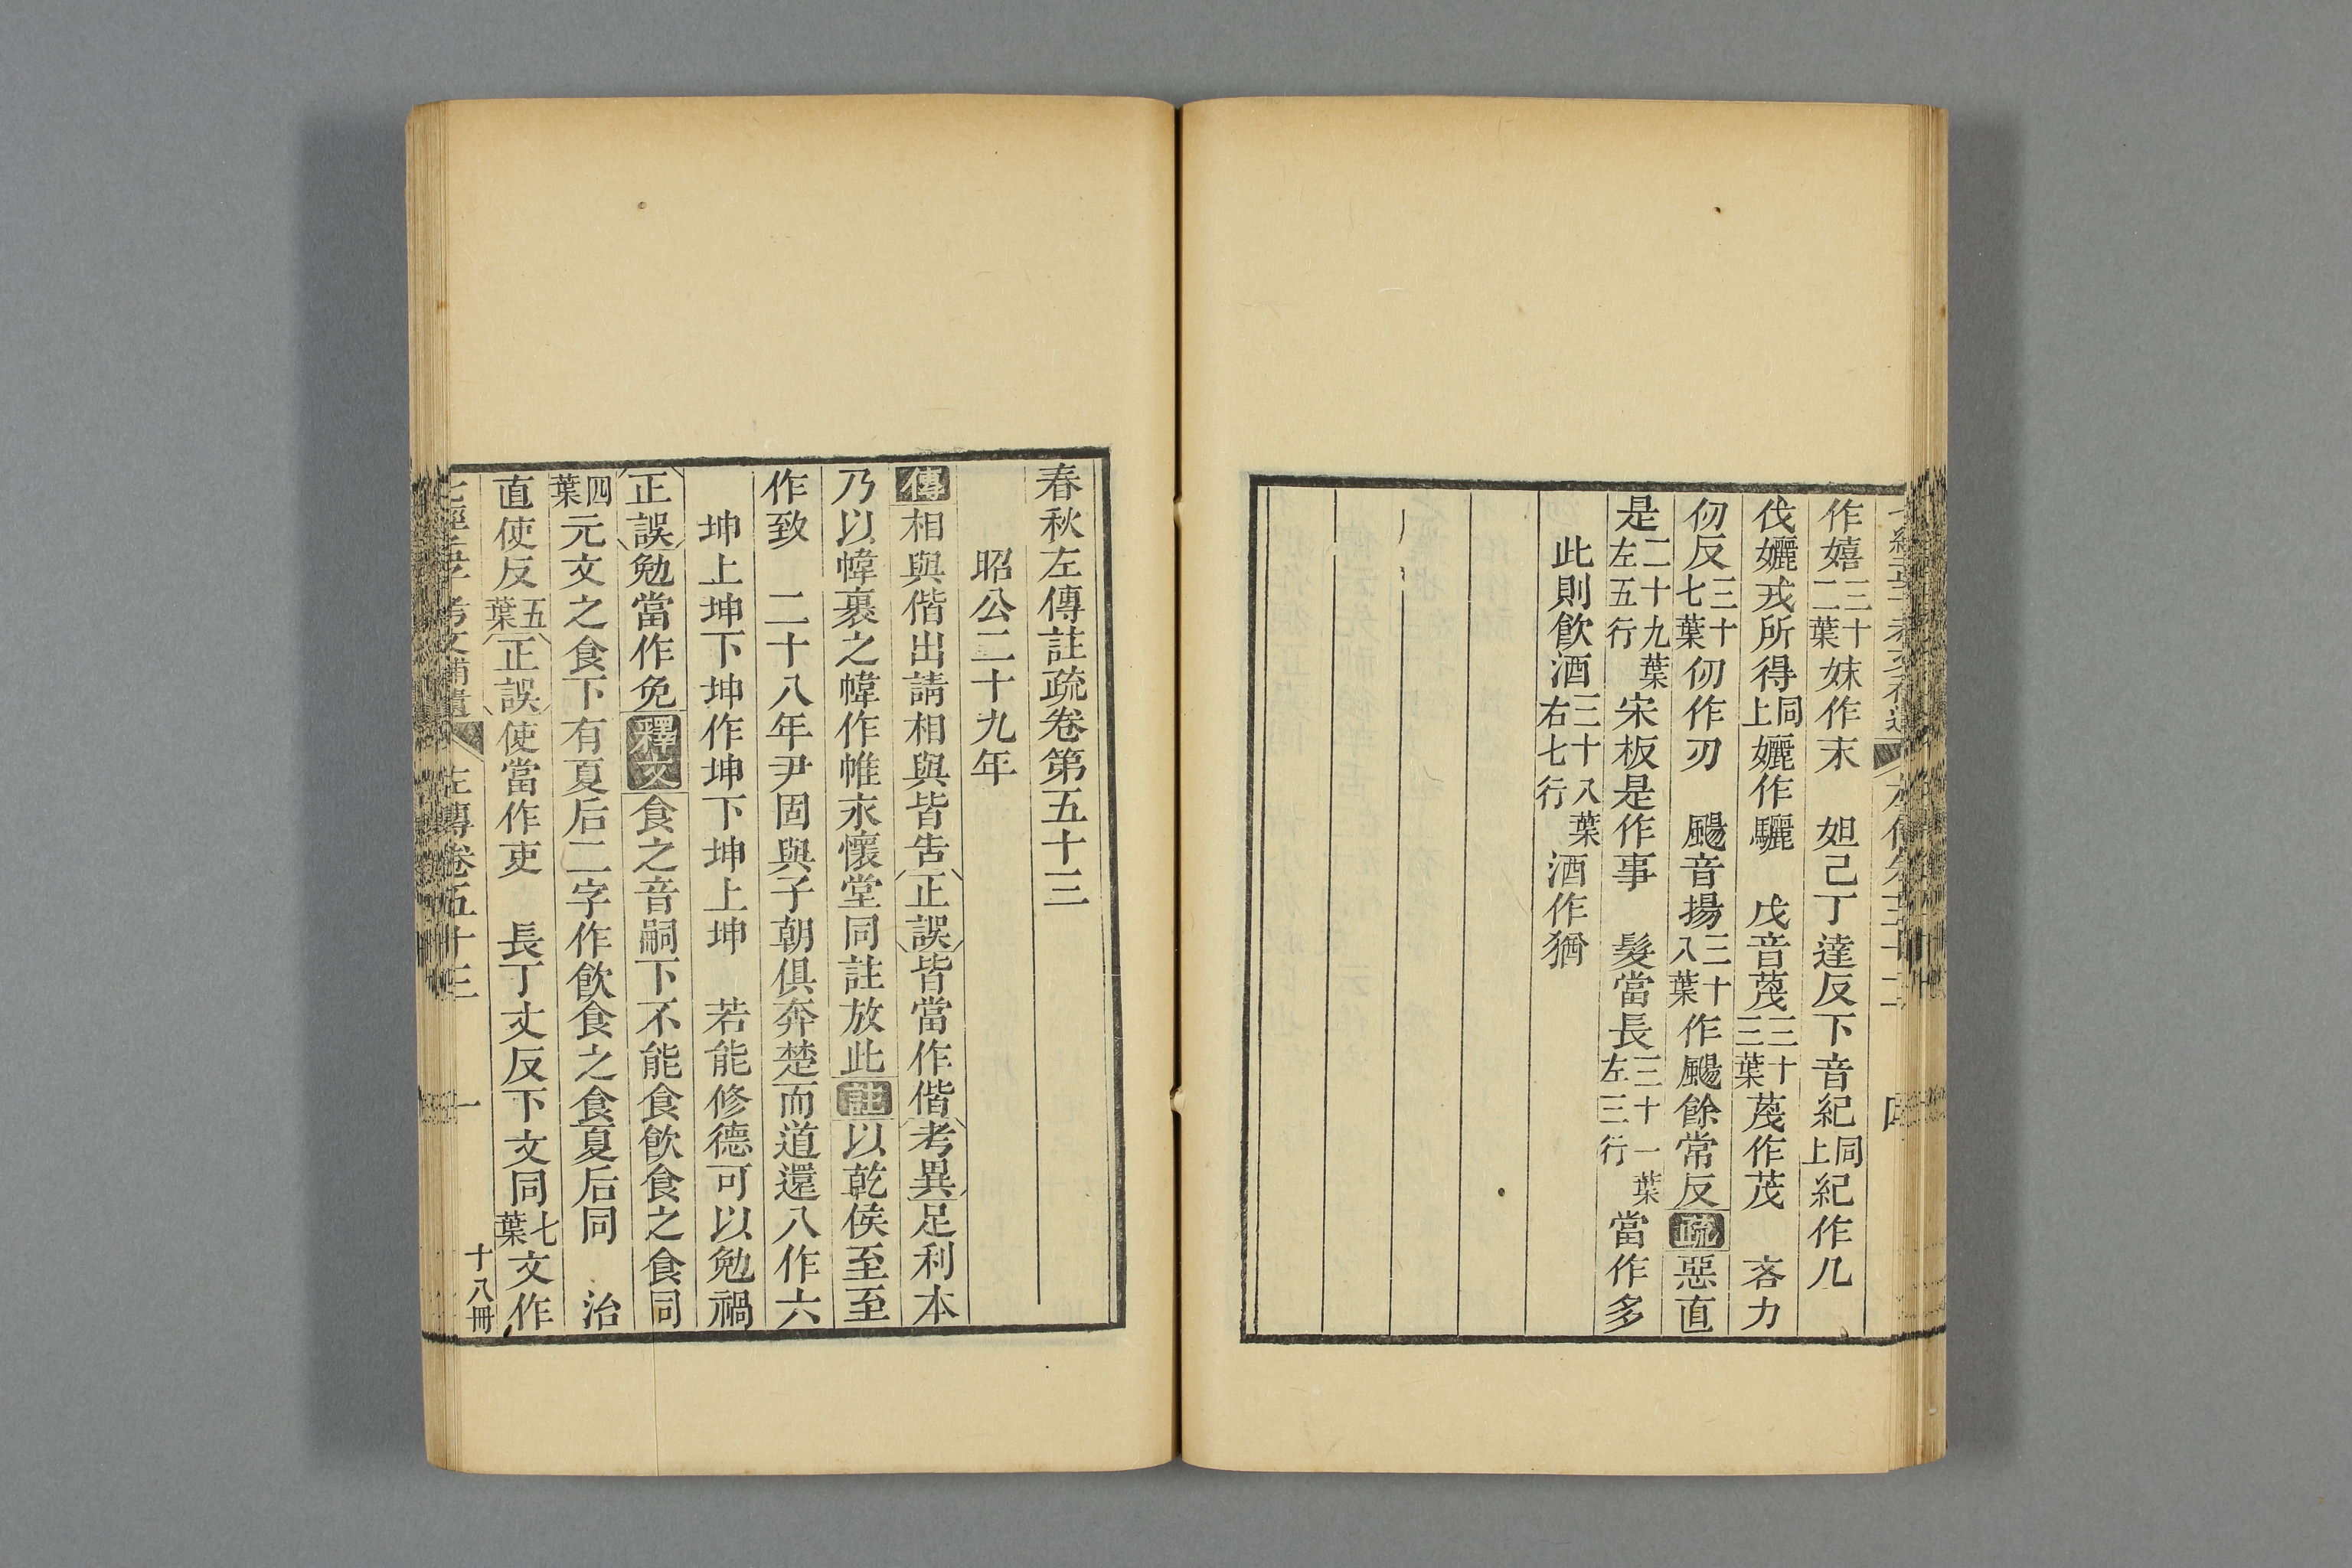 作嬉三十二葉妹作末　妲己丁達反下音紀同上紀作几
伐孋戎所得同上孋作驪　戊音蔑三十三葉蔑作茂　吝力
仞反三十七葉仞作刃　颺音揚三十八葉作颺餘常反疏惡直
是二十九葉左五行宋板是作事　髮當長三十一葉左三行當作多
此則飲酒三十八葉右七行酒作猶
春秋左傳註疏卷第五十三
昭公二十九年
傳相與偕出請相與皆告正誤皆當作偕考異足利本
乃以幃裹之幃作帷末懷堂同註放此註以乾侯至至
作致　二十八年尹固與子朝俱奔楚而道還八作六
坤上坤下坤作坤下坤上坤　若能修德可以勉禍
正誤勉當作免釋文食之音嗣下不能食飲食之食同
四葉元文之食下有夏后二字作飲食之食夏后同　治
直使反五葉正誤使當作吏　長丁丈反下文同七葉文作
七經孟子考文補遺　左傳卷五十三　一　十八冊